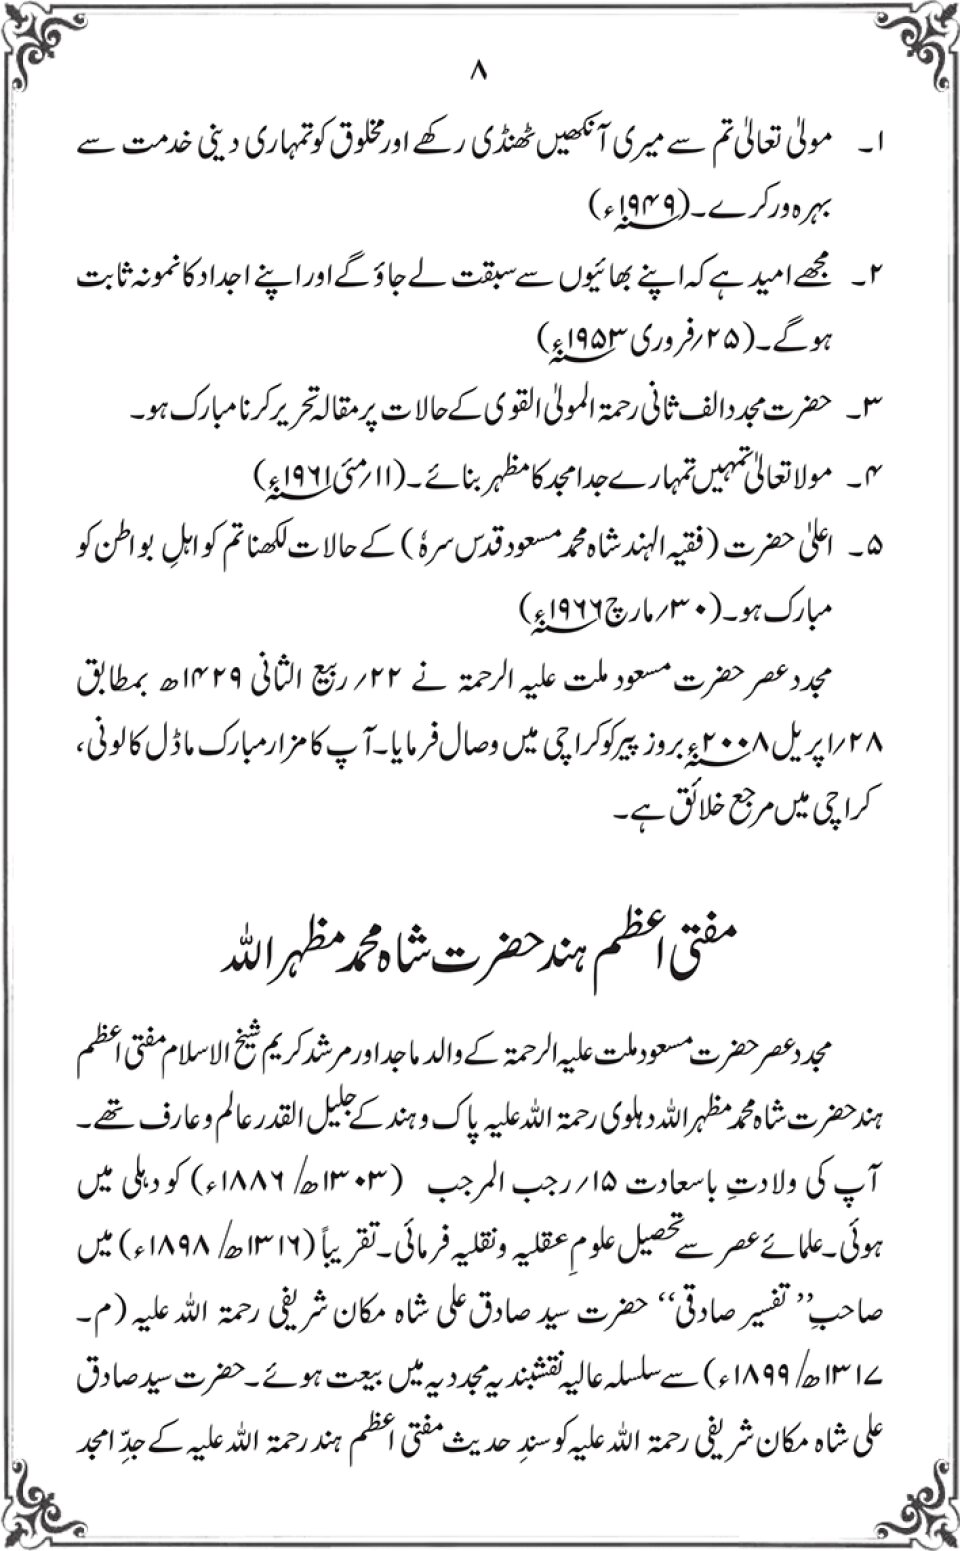 ۸
۱۔ مولیٰ تعالیٰ تم سے میری آنکھیں ٹھنڈی رکھے اور مخلوق کو تمہاری دینی خدمت سے
بہرہ ور کرے۔ (۱۹۴۹ء)
۲۔ مجھے امید ہے کہ اپنے بھائیوں سے سبقت لے جاؤ گے اور اپنے اجداد کا نمونہ ثابت
ہوگے۔ (۲۵؍فروری ۱۹۵۳ء)
۳۔ حضرت مجدد الف ثانی رحمۃ المولیٰ القوی کے حالات پر مقالہ تحریر کرنا مبارک ہو۔
۴۔ مولا تعالیٰ تمہیں تمہارے جد امجد کا مظہر بنائے۔ (۱۱؍مئی ۱۹۶۱ء)
۵۔ اعلیٰ حضرت (فقیہ الہند شاہ محمد مسعود قدس سرہٗ) کے حالات لکھنا تم کو اہلِ بواطن کو
مبارک ہو۔ (۳۰؍مارچ ۱۹۶۶ء)
مجدد عصر حضرت مسعود ملت علیہ الرحمۃ نے ۲۲؍ ربیع الثانی ۱۴۲۹ھ بمطابق
۲۸؍اپریل ۲۰۰۸ء بروز پیر کو کراچی میں وصال فرمایا۔ آپ کا مزار مبارک ماڈل کالونی،
کراچی میں مرجع خلائق ہے۔
مفتی اعظم ہند حضرت شاہ محمد مظہر اللہ
مجدد عصر حضرت مسعود ملت علیہ الرحمۃ کے والد ماجد اور مرشد کریم شیخ الاسلام مفتی اعظم
ہند حضرت شاہ محمد مظہر اللہ دہلوی رحمۃ اللہ علیہ پاک و ہند کے جلیل القدر عالم و عارف تھے۔
آپ کی ولادتِ باسعادت ۱۵؍رجب المرجب (۱۳۰۳ھ/۱۸۸۶ء) کو دہلی میں
ہوئی۔ علمائے عصر سے تحصیل علومِ عقلیہ و نقلیہ فرمائی۔ تقریباً (۱۳۱۶ھ/۱۸۹۸ء) میں
صاحبِ ’’تفسیر صادقی‘‘ حضرت سید صادق علی شاہ مکان شریفی رحمۃ اللہ علیہ (م۔
۱۳۱۷ھ/۱۸۹۹ء) سے سلسلہ عالیہ نقشبندیہ مجددیہ میں بیعت ہوئے۔ حضرت سید صادق
علی شاہ مکان شریفی رحمۃ اللہ علیہ کو سندِ حدیث مفتی اعظم ہند رحمۃ اللہ علیہ کے جدِّ امجد